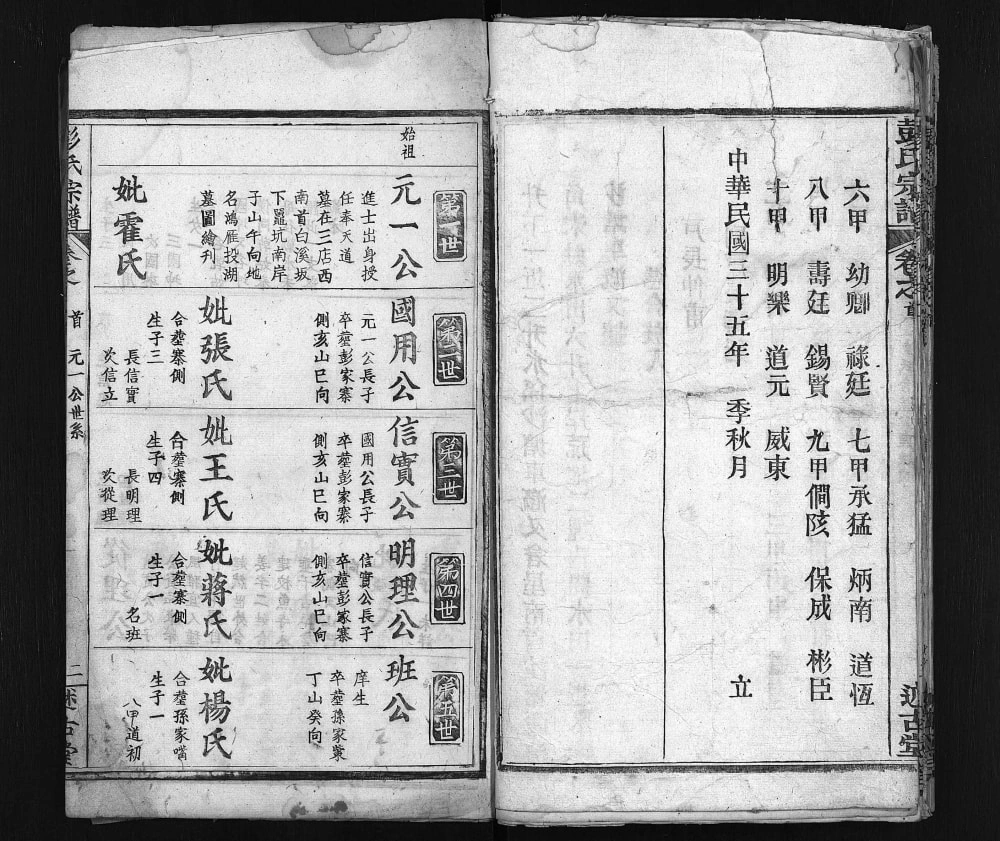 彭氏宗譜
卷之首
述古堂
六甲 幼卿 祿廷 七甲承猛 炳南 道恆
八甲 壽廷 錫賢 九甲僩陔 保成 彬臣
十甲 明樂 道元 威東
中華民國三十五年 季秋月 立
第一世
始祖
元一公
進士出身授
任奉天道
墓在三店西
南首白溪坂
下鼉坑南岸
子山午向地
名鴻雁投湖
墓圖繪刋
妣霍氏
第二世
國用公
元一公長子
卒塟彭家寨
側亥山巳向
妣張氏
合塟寨側
生子三
長信實
次信立
第三世
信實公
國用公長子
卒塟彭家寨
側亥山巳向
妣王氏
合塟寨側
生子四
長明理
次從理
第四世
明理公
信實公長子
卒塟彭家寨
側亥山巳向
妣蔣氏
合塟寨側
生子一
名班
第五世
班公
庠生
卒塟孫家
丁山癸向
妣楊氏
合塟孫家嘴
生子一
八甲道初
彭氏宗譜
卷之
首 元一公世系
二
述古堂